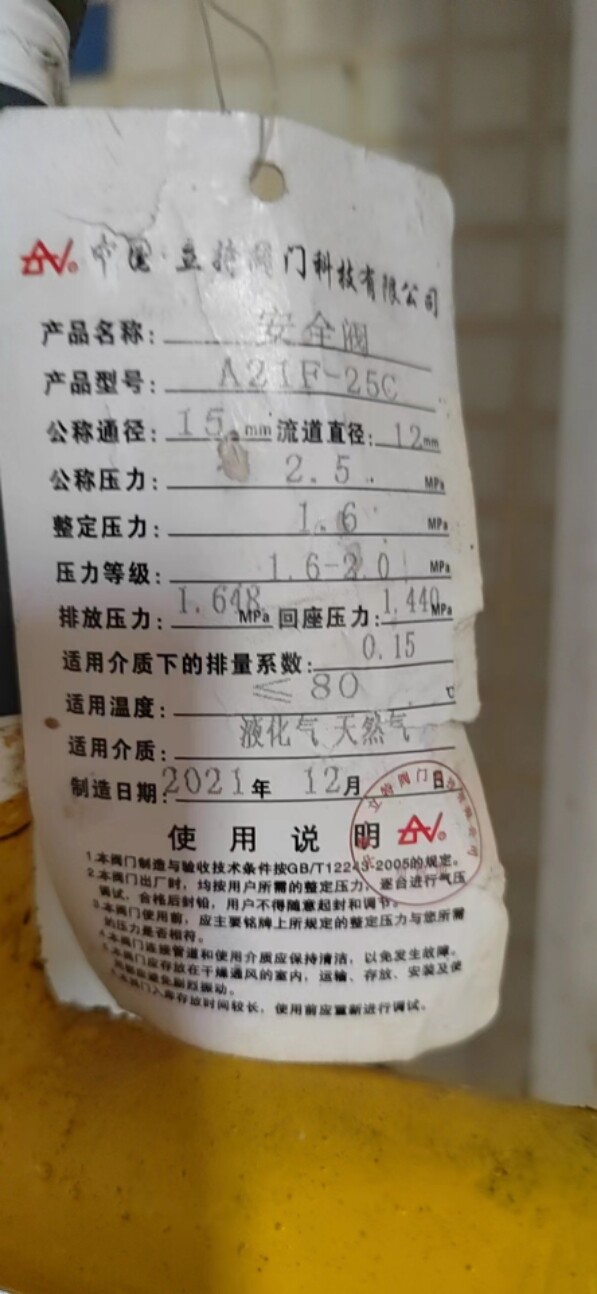 中国·立持阀门科技有限公司
产品名称: 安全阀
产品型号: A21F-25C
公称通径: 15 mm 流道直径: 12mm
公称压力: 2.5 MPa
整定压力: 1.6 MPa
压力等级: 1.6-2.0 MPa
排放压力: 1.648 MPa 回座压力: 1.440 MPa
适用介质下的排量系数: 0.15
适用温度: ≤80 ℃
适用介质: 液化气 天然气
制造日期: 2021年 12月 日
使用说明
1.本阀门制造与验收技术条件按GB/T12243-2005的规定。
2.本阀门出厂时，均按用户所需的整定压力，逐台进行气压
调试，合格后封铅，用户不得随意起封和调节。
3.本阀门使用前，应主要铭牌上所规定的整定压力与您所需
的压力是否相符。
4.本阀门连接管道和使用介质应保持清洁，以免发生故障。
5.本阀门应存放在干燥通风的室内，运输、存放、安装及使
剧烈振动。
本阀门入库存放时间较长，使用前应重新进行调试。